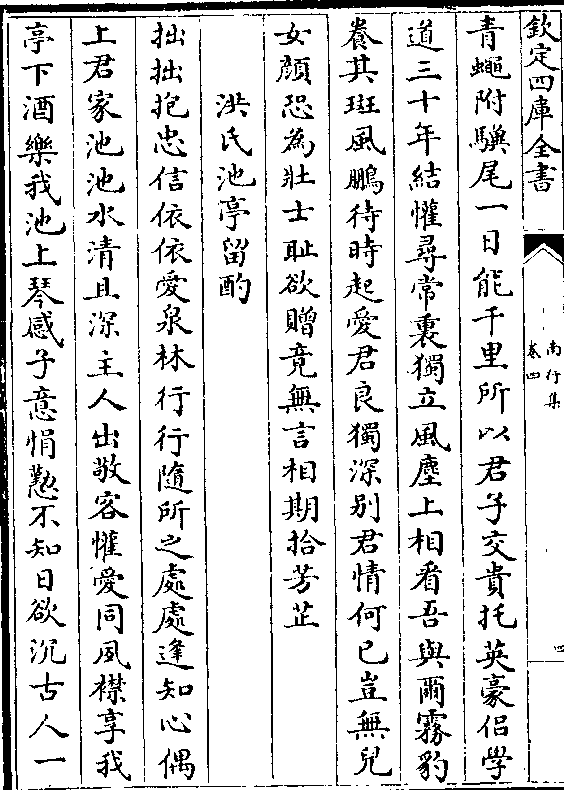 欽定四庫全書
南行集
卷四
四
青蠅附驥尾一日能千里所以君子交貴托英豪侣學
道三十年結懽尋常裏獨立風塵上相看吾與爾霧豹
養其斑風鵬待時起愛君良獨深别君情何已豈無兒
女顔恐為壯士耻欲贈竟無言相期拾芳芷
洪氏池亭留酌
拙拙抱忠信依依愛泉林行行隨所之處處逢知心偶
上君家池池水清且深主人出敬客懽愛同夙襟享我
亭下酒樂我池上琴感子意悁懃不知日欲沉古人一